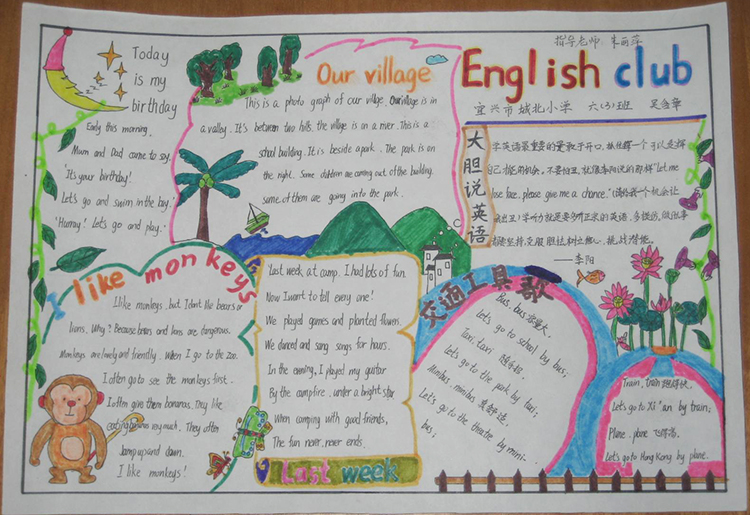 指导老师 朱丽萍
English club
宜兴市城北小学 六(3)班
Today
is my
birthday
Early this morning,
Mum and Dad came to say,
"It's your birthday!
Let's go and swim in the bay."
"Hurray! Let's go and play."
Our village
This is a photo graph of our village. Ourvillage is in
a valley. It's between two hills, the village is on a river. This is a
school building. It is beside a park. The park is on
the right. Some children are coming out of the building.
some of them are going into the park.
大胆说英语
学英语最重要的是敢于开口,抓住每一个可以选择
自己才能用机会。不要怕丑,就像李阳说的那样"Let me
lose face, please give me a chance."(请给我一个机会让
我出丑)学听力就是要多听正宗的英语,多模仿,做做事
李阳
I like monkeys
I like monkeys, but I don't like bears or
lions. Why? Because bears and lions are dangerous.
Monkeys are lively and friendly. When I go to the Zoo.
I often go to see the monkeys first.
I often give them bananas. They like
eating bananas very much. They often
jump up and down.
I like monkeys!
Last week at camp, I had lots of fun.
Now I want to tell every one!
We played games and planted flowers.
We danced and sang songs for hours.
In the evening, I played my guitar
By the campfire, under a bright star
When camping with good friends,
The fun never, never ends.
Last week
交通工具歌
Bus, bus 容量大,
Let's go to school by bus;
Taxi, taxi
Let's go to the park by taxi;
Minibus, minibus
Let's go to the theatre by mini-
bus;
Train, train 跑得快,
Let's go to Xi'an by train;
Plane, plane 飞得高,
Let's go to Hong Kong by plane.